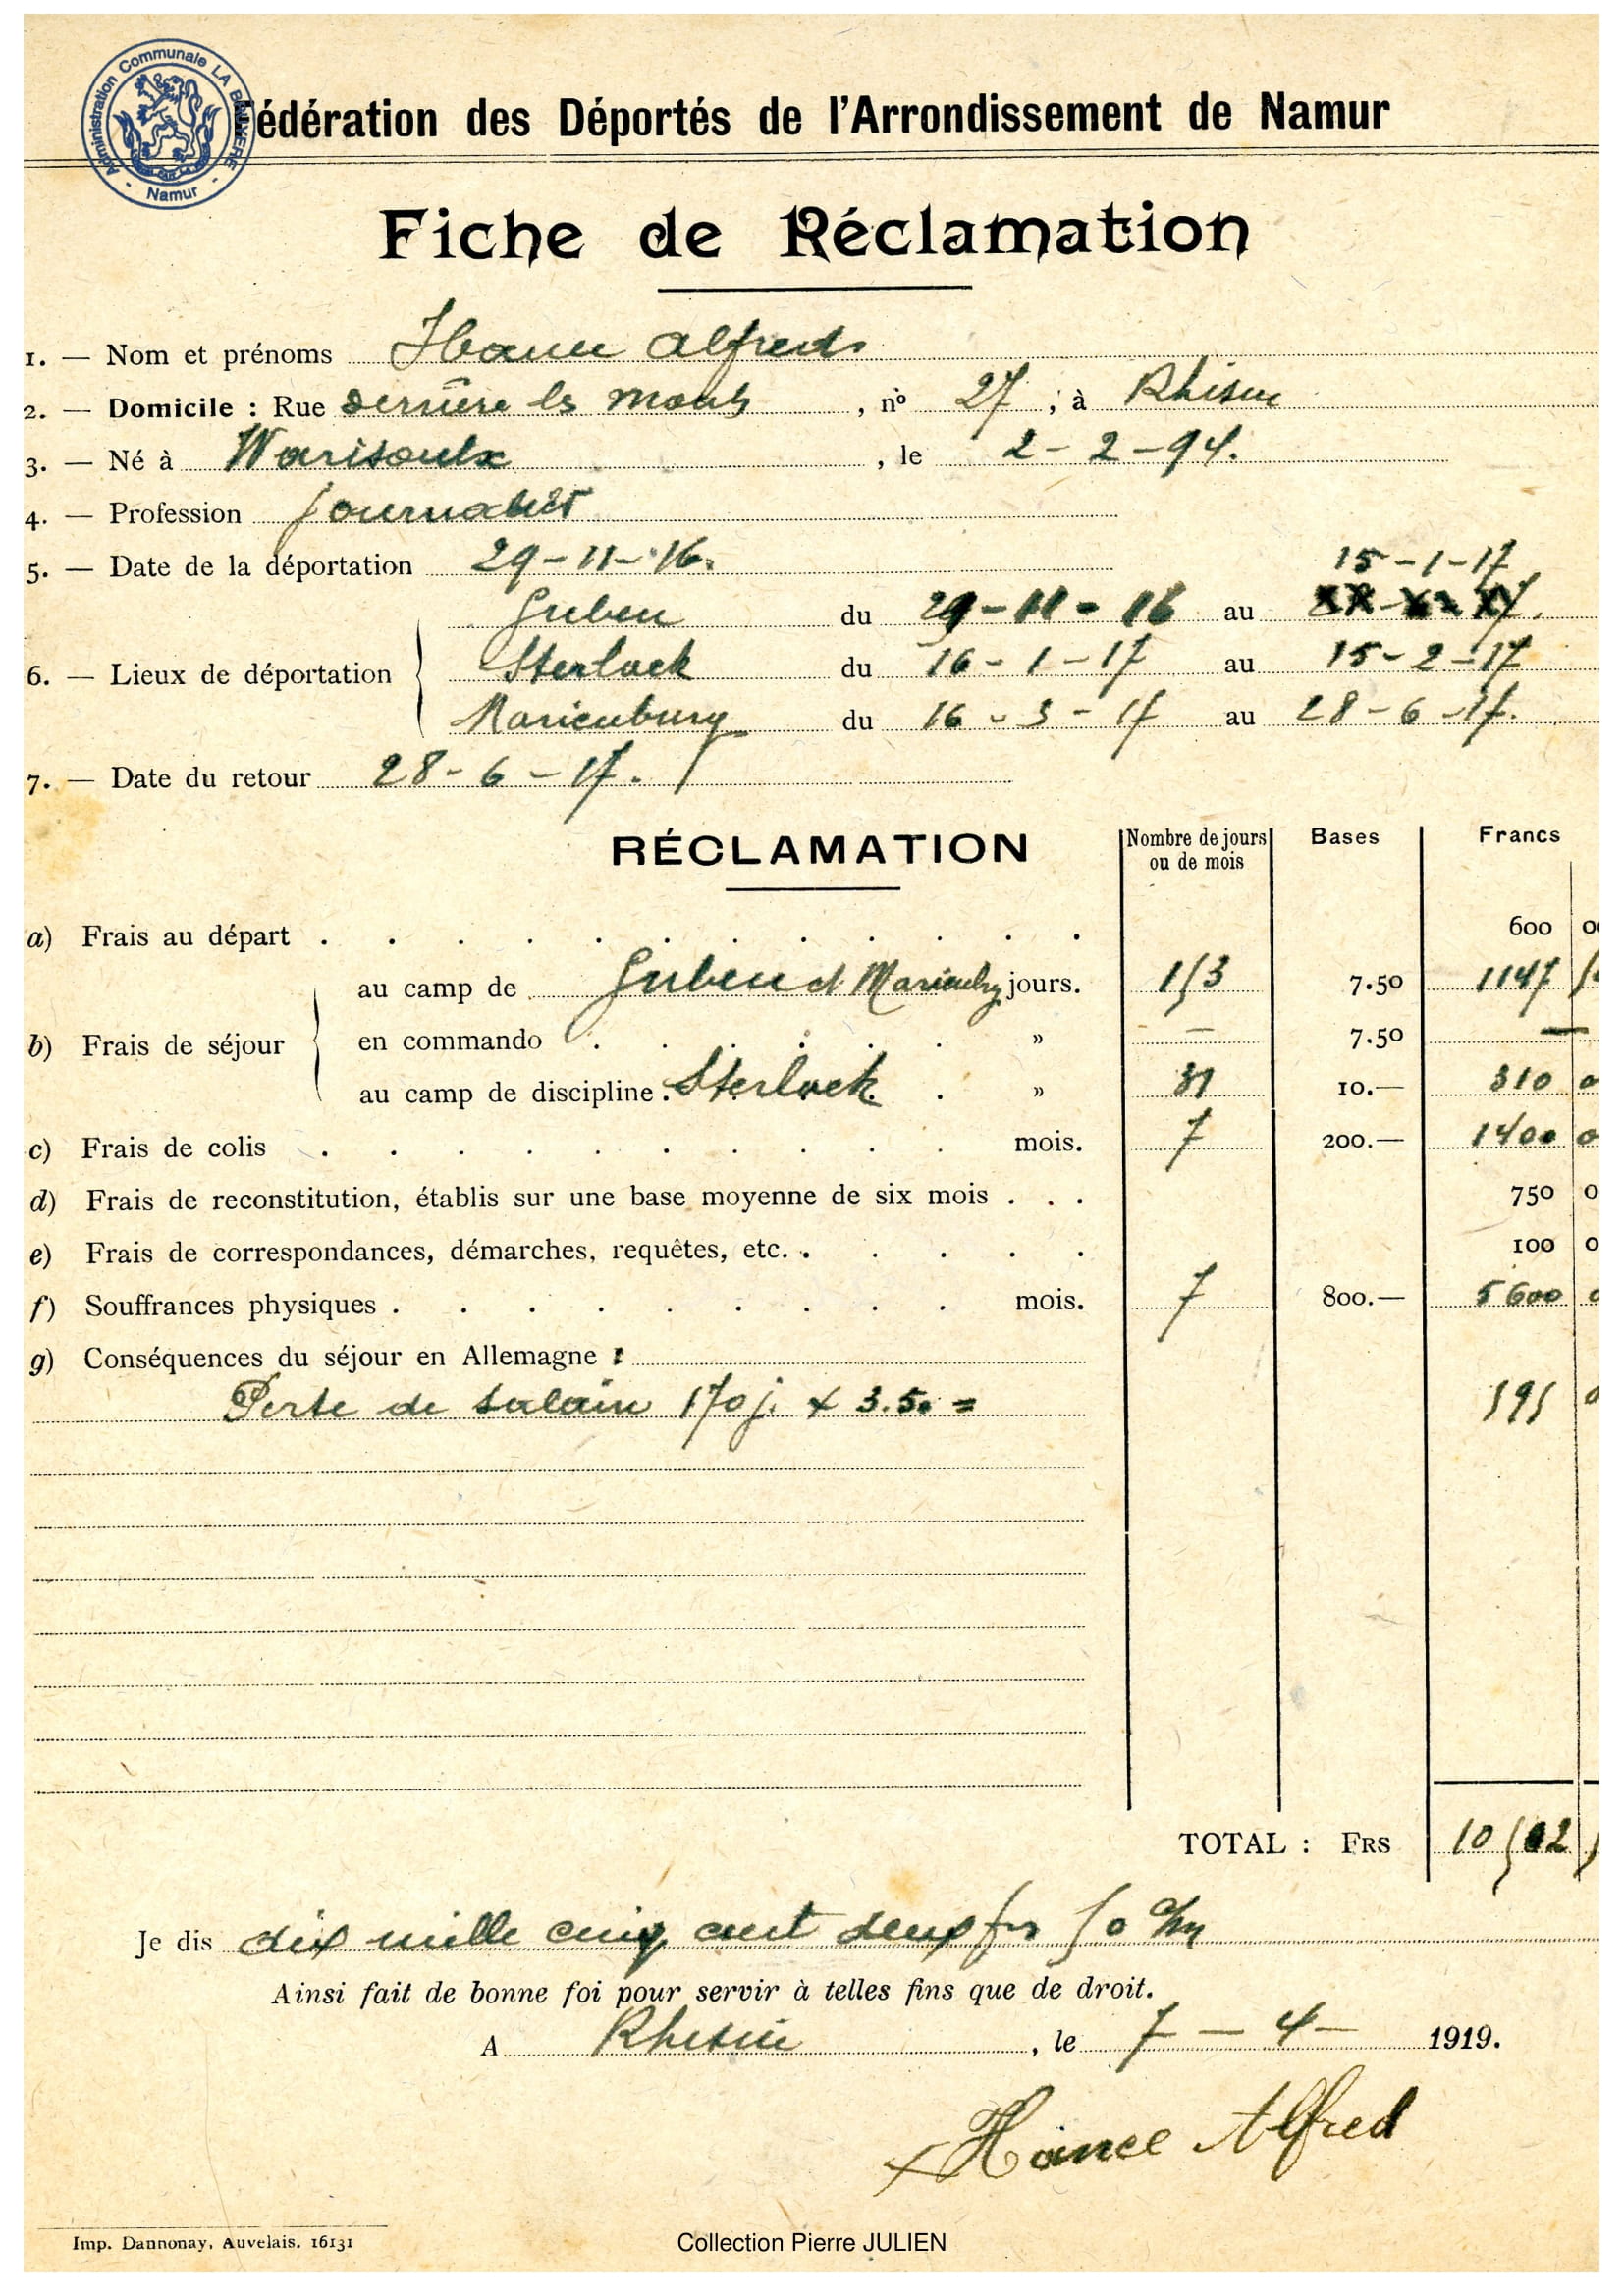 Administration Communale LA BRUYERE
- Namur -
Fédération des Déportés de l'Arrondissement de Namur
Fiche de Réclamation
1. — Nom et prénoms Hance Alfred
2. — Domicile : Rue derrière les Monts, n° 27, à Rhisne
3. — Né à Warisoulx, le 2-2-94.
4. — Profession Journalier
5. — Date de la déportation 29-11-16.
15-1-17
Guben du 29-11-16 au
6. — Lieux de déportation Sterlack du 16-1-17 au 15-2-17
Marienburg du 16-3-17 au 28-6-17.
7. — Date du retour 28-6-17.
RÉCLAMATION Nombre de jours ou de mois Bases Francs
a) Frais au départ 600
au camp de Guben et Marienburg jours. 153 7.50 1147 50
b) Frais de séjour en commando » — 7.50 —
au camp de discipline. Sterlack » 31 10.— 310
c) Frais de colis mois. 7 200.— 1400
d) Frais de reconstitution, établis sur une base moyenne de six mois . . . 750
e) Frais de correspondances, démarches, requêtes, etc. 100
f) Souffrances physiques mois. 7 800.— 5600
g) Conséquences du séjour en Allemagne :
Perte de salaire 170 j. x 3.50 = 595
TOTAL : FRS 10502
Je dis dix mille cinq cent deux frs 50 cms
Ainsi fait de bonne foi pour servir à telles fins que de droit.
A Rhisne, le 7 - 4 - 1919.
Hance Alfred
Imp. Dannonay, Auvelais. 16131
Collection Pierre JULIEN